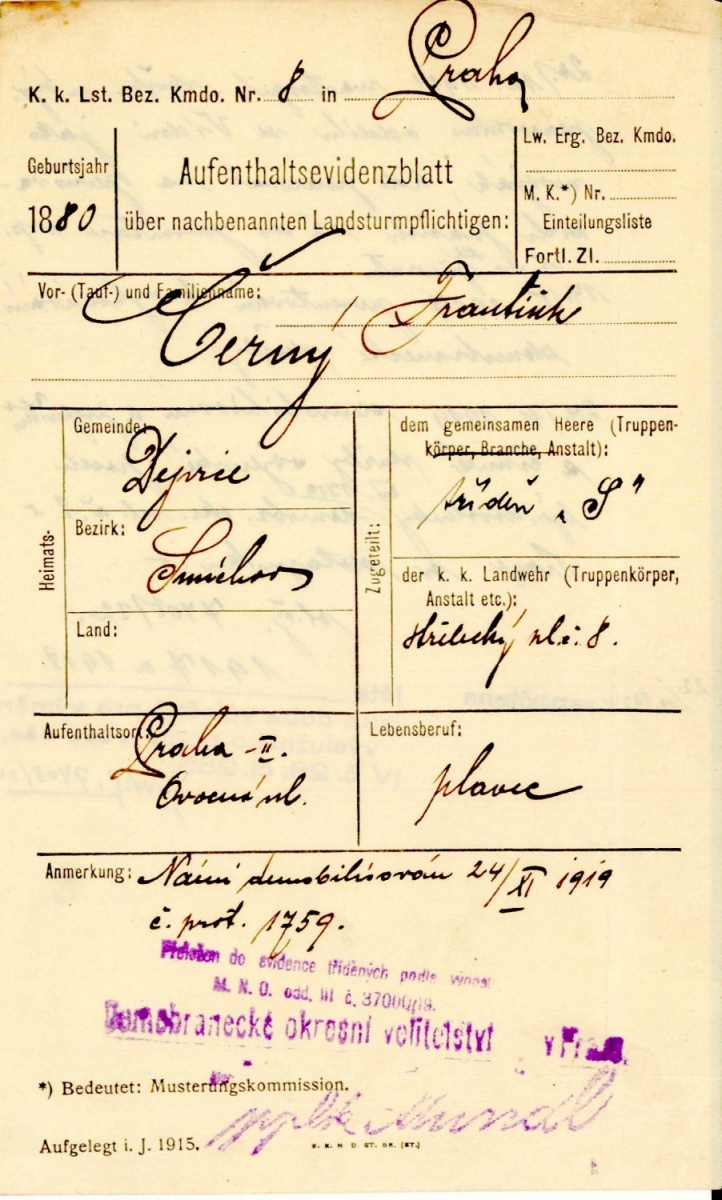 Praha
K. k. Lst. Bez. Kmdo. Nr. 8 in
Geburtsjahr
1880
Aufenthaltsevidenzblatt
über nachbenannten Landsturmpflichtigen:
Lw. Erg. Bez. Kmdo.
M. K.*) Nr.
Einteilungsliste
Fortl. Zl.
Vor- (Tauf-) und Familienname:
Černý František
Heimats-
Gemeinde:
Dejvice
Bezirk:
Smíchov
Land:
Zugeteilt:
dem gemeinsamen Heere (Truppen-
körper, Branche, Anstalt):
tříděn „S"
der k. k. Landwehr (Truppenkörper,
Anstalt etc.):
střelecký pl. č. 8.
Aufenthaltsort:
Praha - II.
Ovocná ul.
Lebensberuf:
plavec
Anmerkung:
demobilisován 24/XI 1919
č. prot. 1759.
Přeložen do evidence tříděných podle výnosu
M. N. O. odd. III č.
Domobranecké okresní velitelství v Praze.
*) Bedeutet: Musterungskommission.
Aufgelegt i. J. 1915.
K. K. H. U. ST. DR. (ST.)